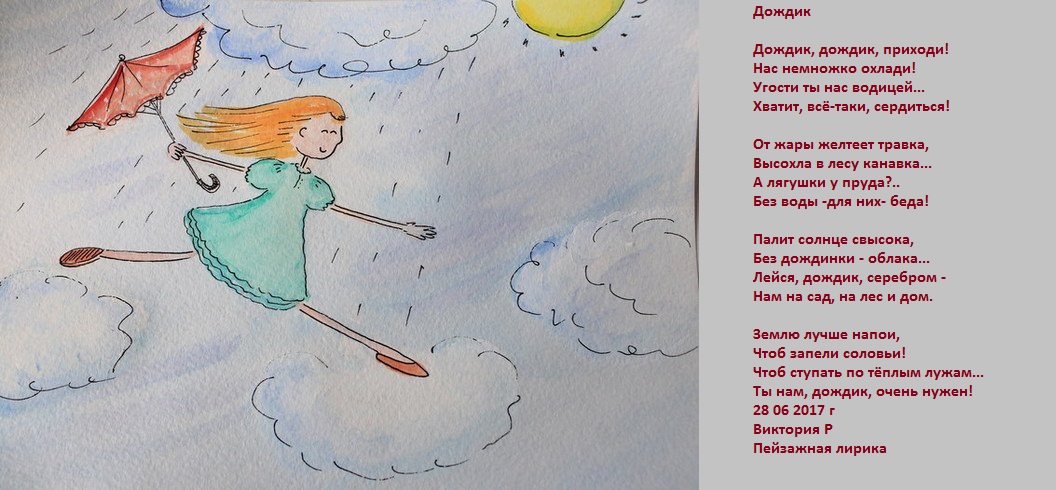 Дождик
Дождик, дождик, приходи!
Нас немножко охлади!
Угости ты нас водицей...
Хватит, всё-таки, сердиться!
От жары желтеет травка,
Высохла в лесу канавка...
А лягушки у пруда?..
Без воды -для них- беда!
Палит солнце свысока,
Без дождинки - облака...
Лейся, дождик, серебром -
Нам на сад, на лес и дом.
Землю лучше напои,
Чтоб запели соловьи!
Чтоб ступать по тёплым лужам...
Ты нам, дождик, очень нужен!
28 06 2017 г
Виктория Р
Пейзажная лирика